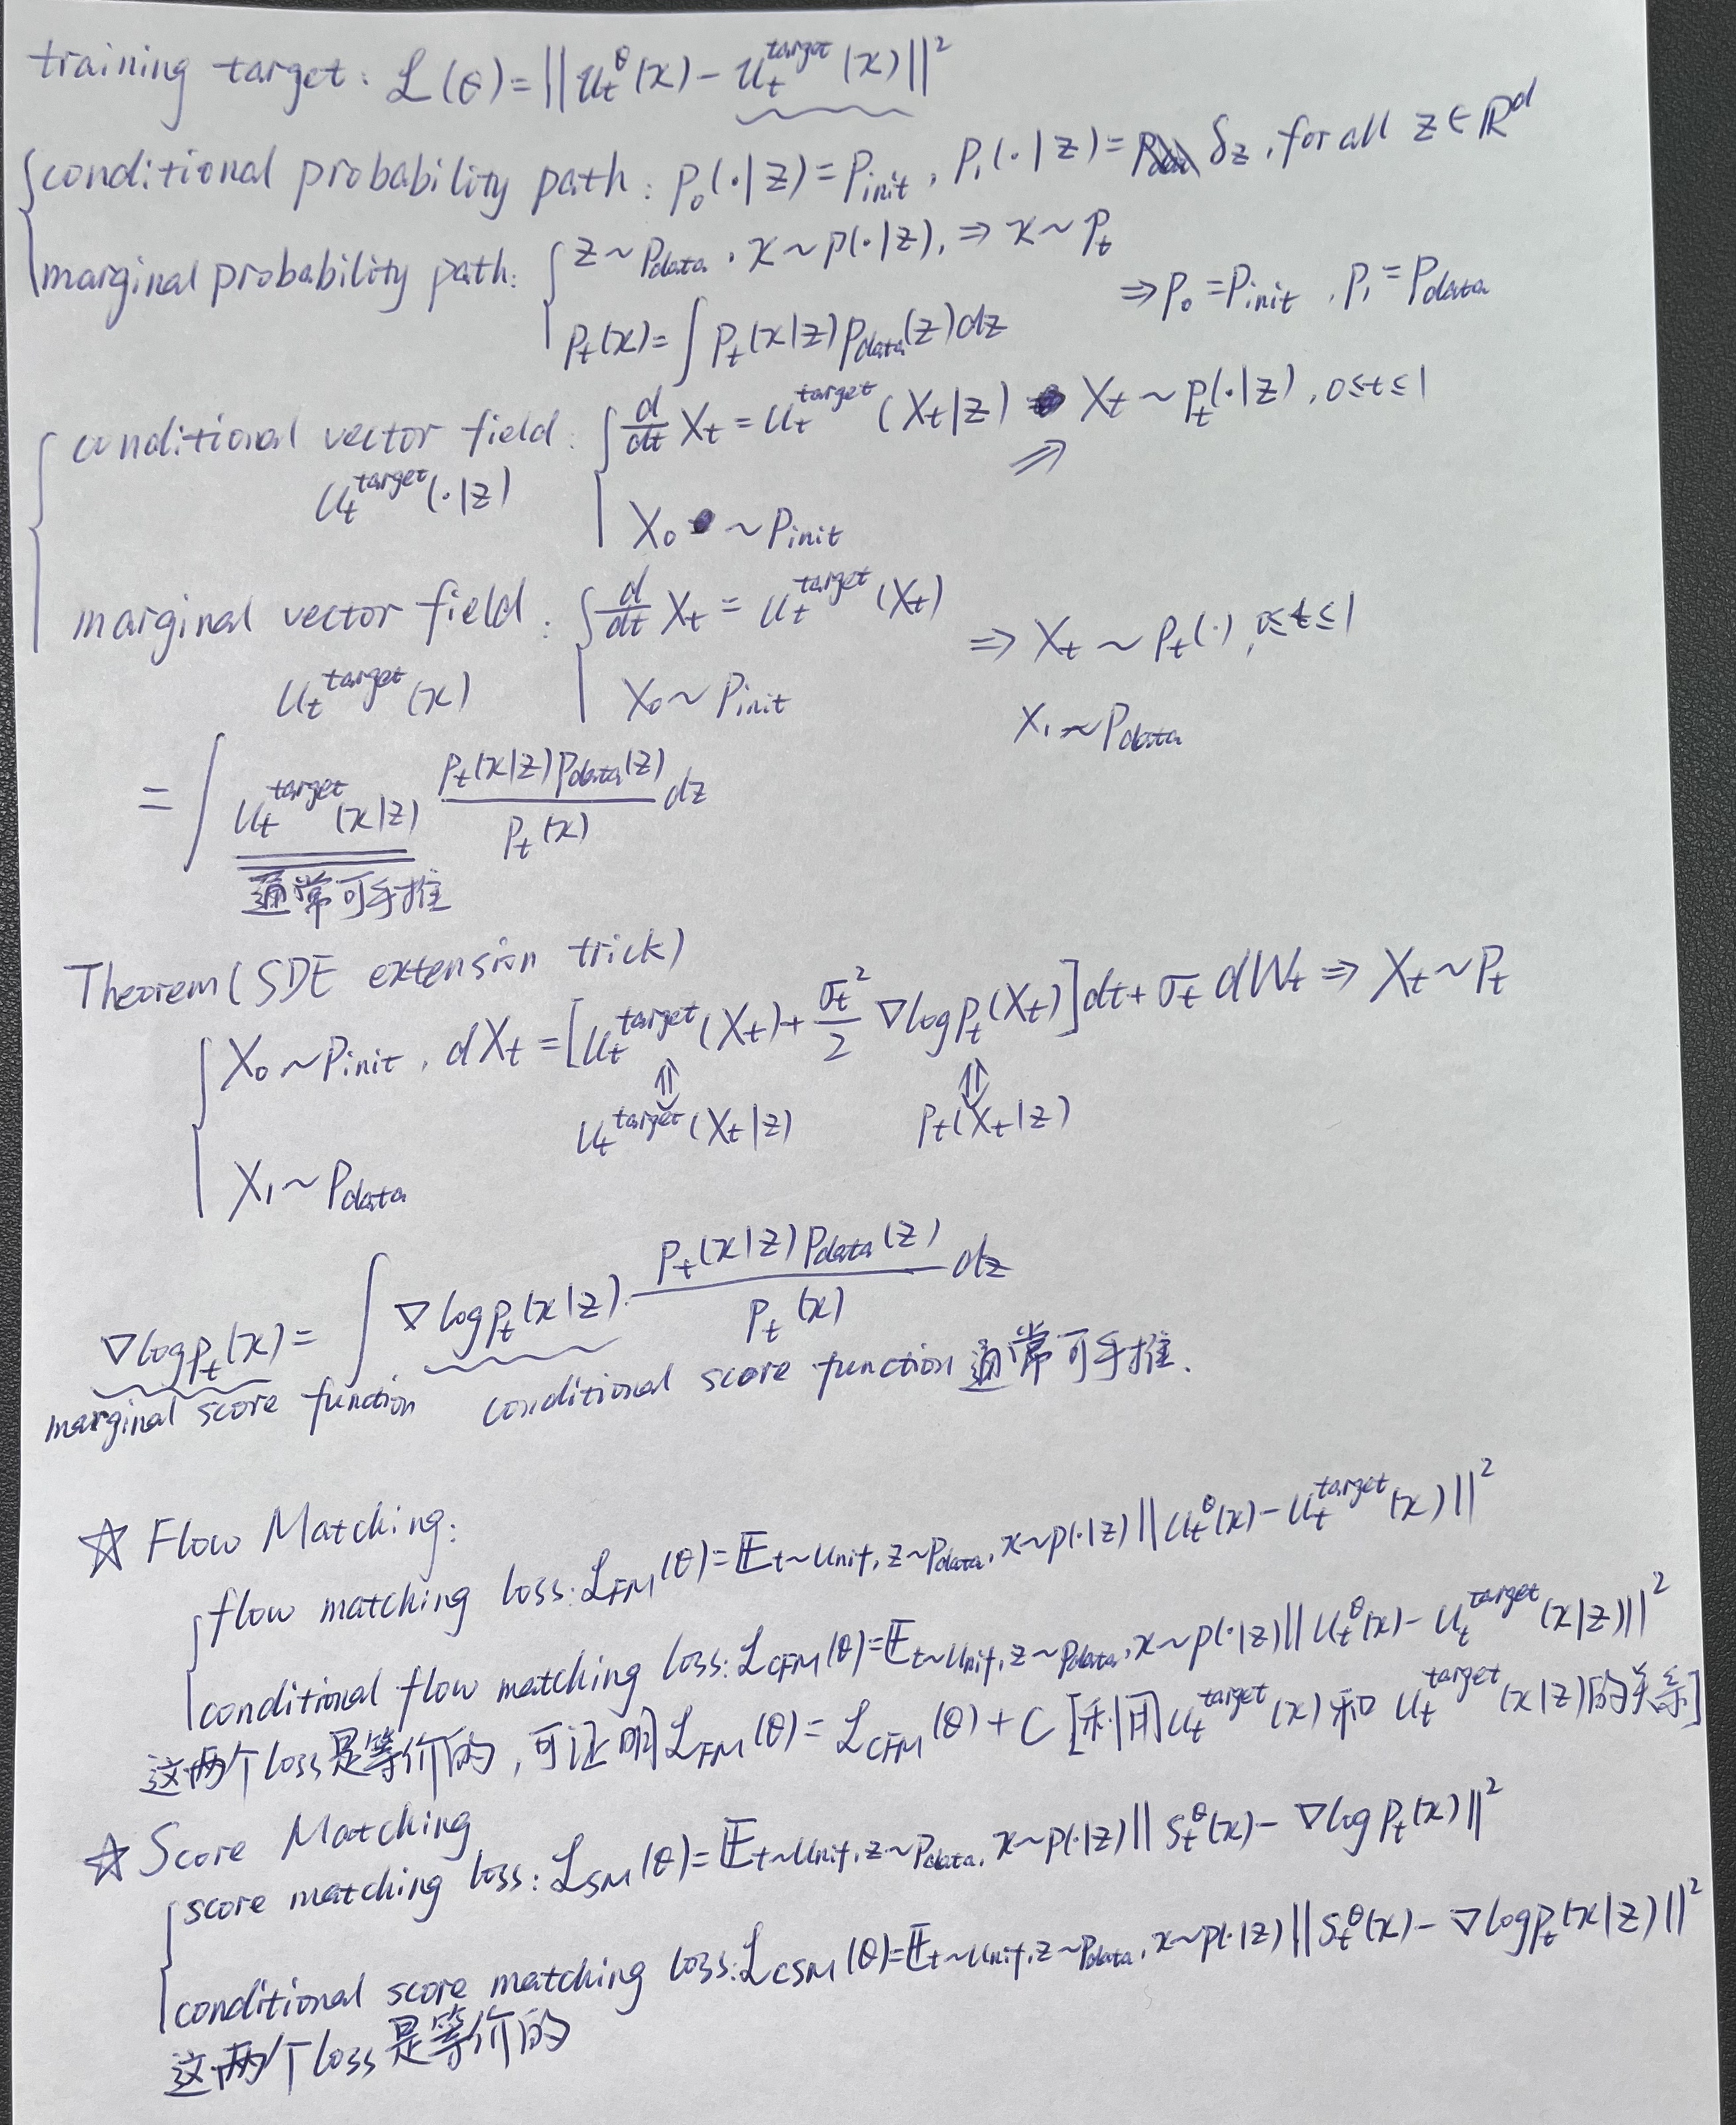 training target: ℒ(θ)=||u_t^θ(x)-u_t^target(x)||²
conditional probability path: p₀(·|z)=P_init, P₁(·|z)=δ_z, for all z∈ℝ^d
marginal probability path: z~P_data, x~p(·|z), ⇒ x~P_t
P_t(x)=∫P_t(x|z)P_data(z)dz ⇒P₀=P_init, P₁=P_data
conditional vector field: d/dt X_t = u_t^target(X_t|z) ⇒ X_t~P_t(·|z), 0≤t≤1
u_t^target(·|z) X₀~P_init
marginal vector field: d/dt X_t = u_t^target(X_t) ⇒ X_t~P_t(·), 0≤t≤1
u_t^target(x) X₀~P_init X₁~P_data
=∫u_t^target(x|z) P_t(x|z)P_data(z)/P_t(x) dz
通常可手推
Theorem(SDE extension trick)
X₀~P_init, dX_t=[u_t^target(X_t)+σ_t²/2 ∇logP_t(X_t)]dt+σ_t dW_t ⇒ X_t~P_t
⇕ ⇕
u_t^target(X_t|z) P_t(X_t|z)
X₁~P_data
∇logP_t(x)=∫∇logP_t(x|z)·P_t(x|z)P_data(z)/P_t(x) dz
marginal score function conditional score function 通常可手推.
☆ Flow Matching:
flow matching loss: ℒ_FM(θ)=𝔼_t~Unif, z~P_data, x~p(·|z)||u_t^θ(x)-u_t^target(x)||²
conditional flow matching loss: ℒ_CFM(θ)=𝔼_t~Unif, z~P_data, x~p(·|z)||u_t^θ(x)-u_t^target(x|z)||²
这两个loss是等价的,可证明ℒ_FM(θ)=ℒ_CFM(θ)+C [利用u_t^target(x)和u_t^target(x|z)的关系]
☆ Score Matching
score matching loss: ℒ_SM(θ)=𝔼_t~Unif, z~P_data, x~p(·|z)||S_t^θ(x)-∇logP_t(x)||²
conditional score matching loss: ℒ_CSM(θ)=𝔼_t~Unif, z~P_data, x~p(·|z)||S_t^θ(x)-∇logP_t(x|z)||²
这两个loss是等价的